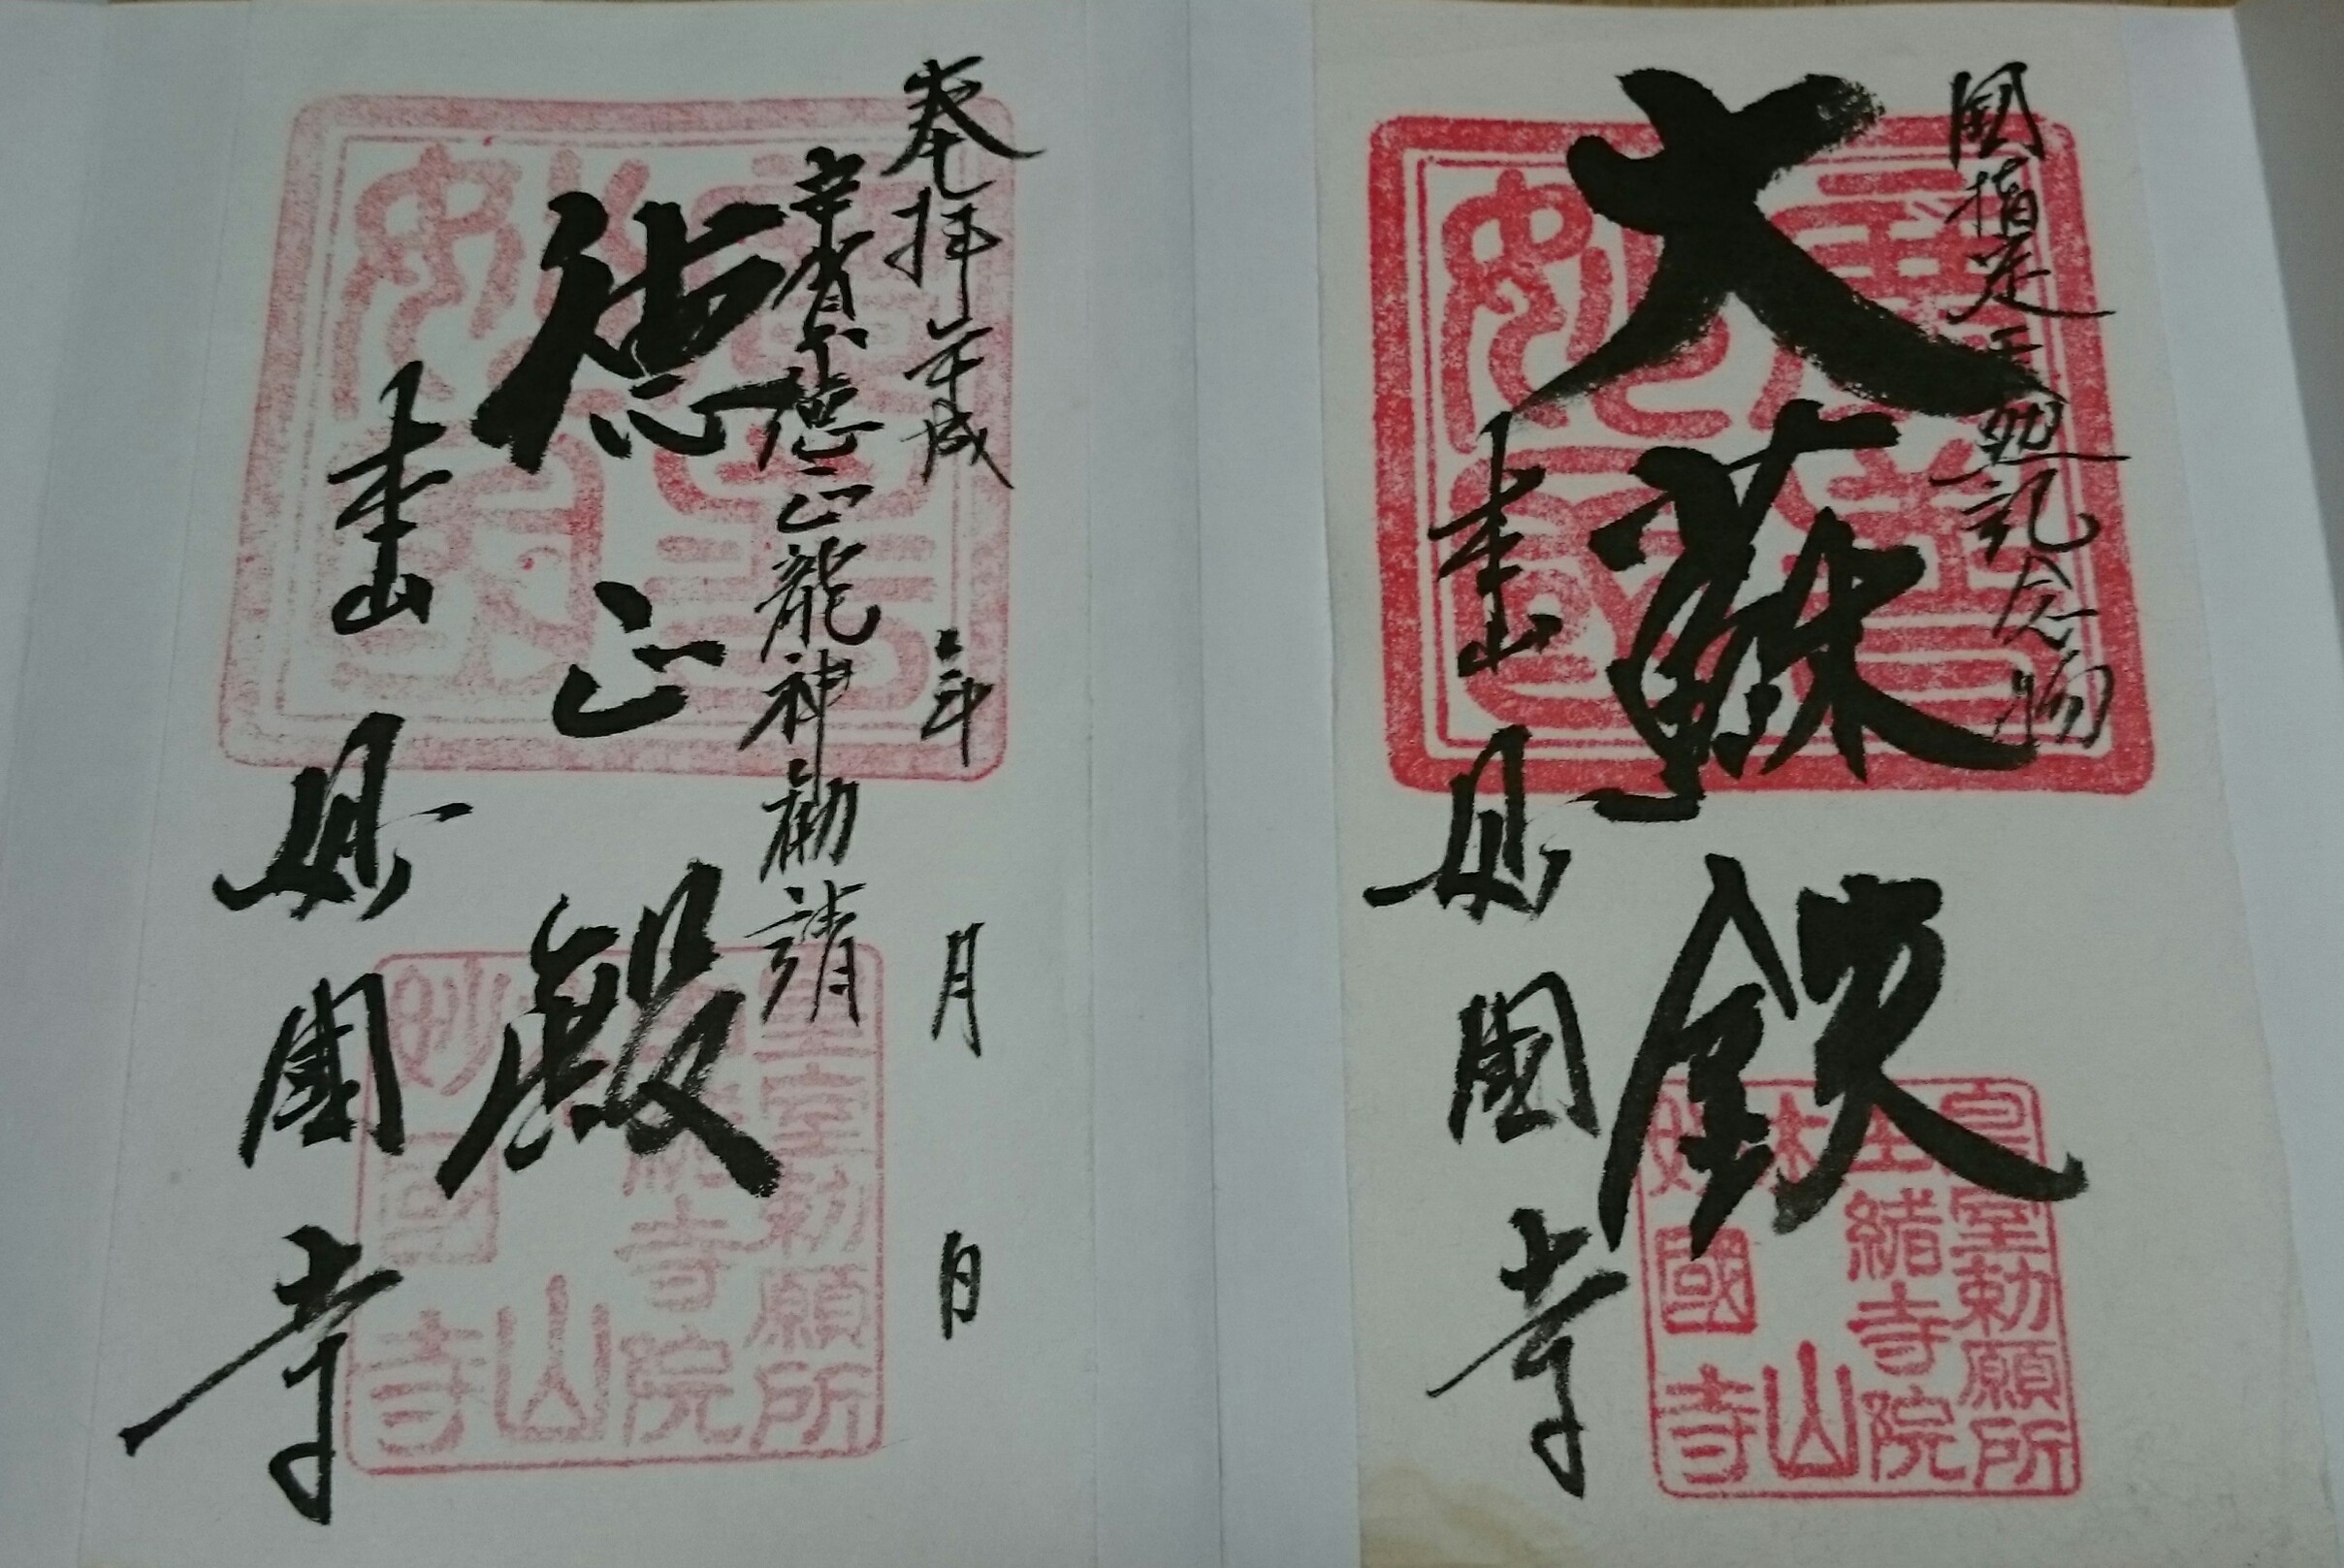 國指定天然記念物
大蘇鉄
本山
妙國寺
皇室勅願所
由緒寺院
山
妙國寺
奉拝 平成 年 月 日
宇賀徳正龍神勧請
徳正殿
本山
妙國寺
皇室勅願所
由緒寺院
山
妙國寺